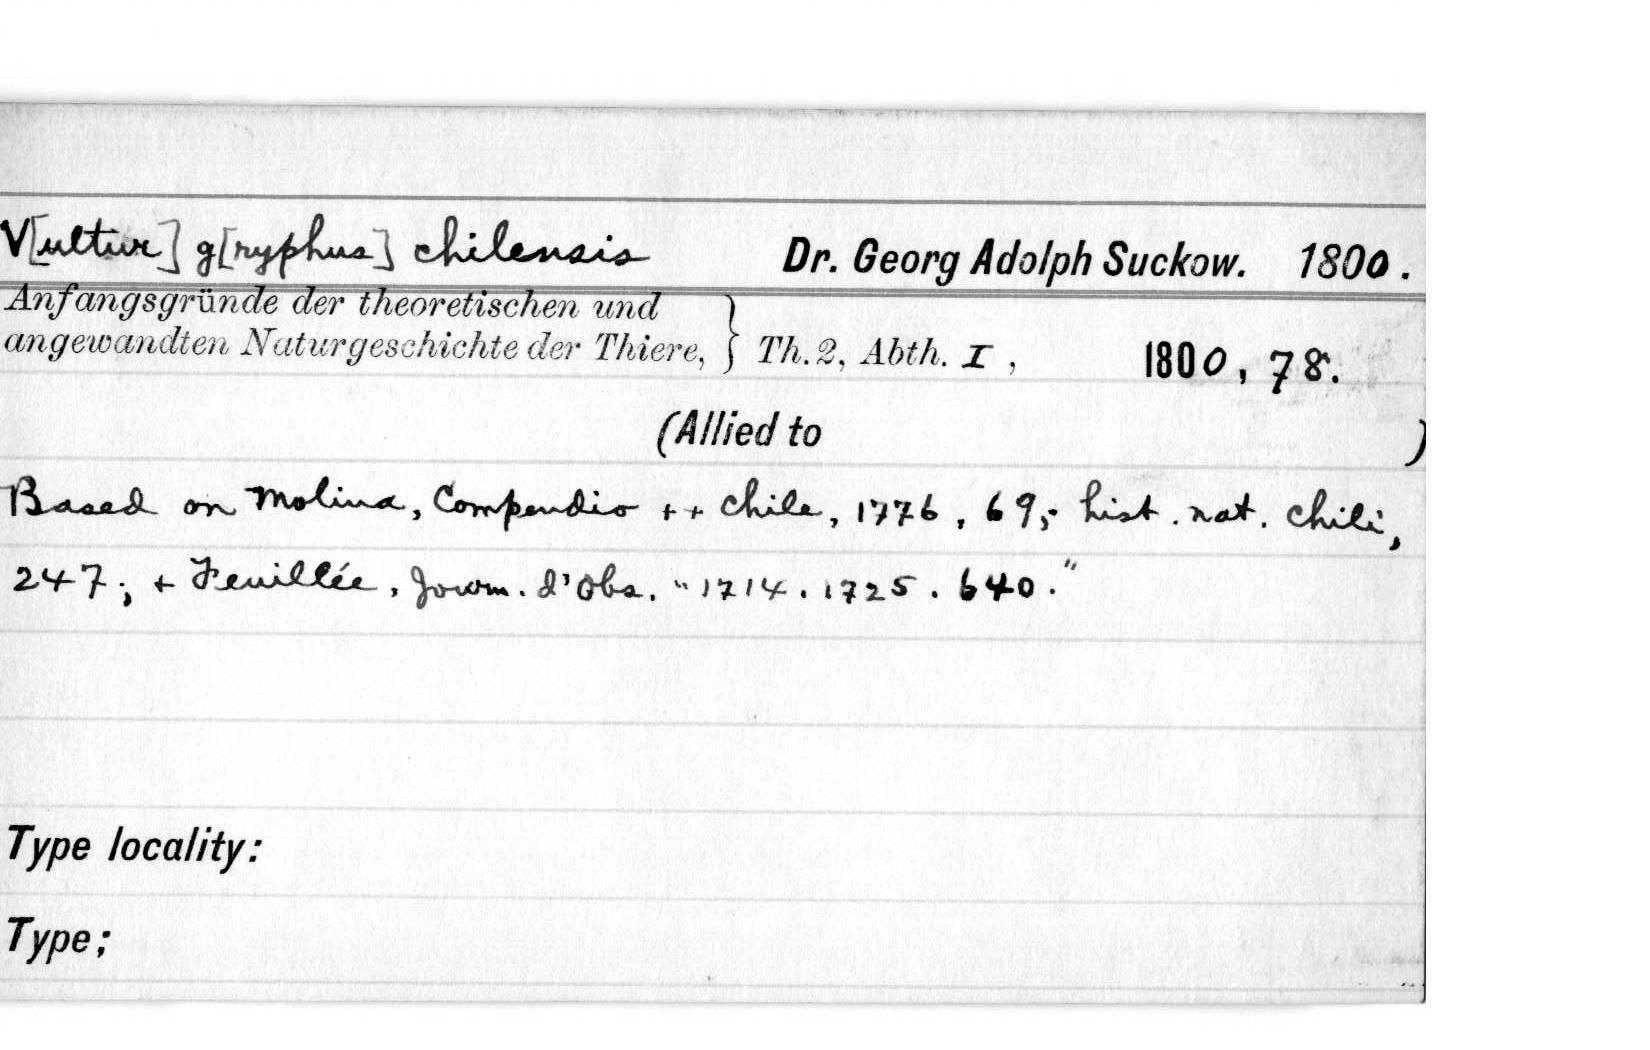 V[ultur] g[ryphus] chilensis Dr. Georg Adolph Suckow. 1800.
Anfangsgründe der theoretischen und
angewandten Naturgeschichte der Thiere, } Th. 2, Abth. I, 1800, 78.
(Allied to )
Based on Molina, Compendio ++ Chile, 1776, 69;- hist. nat. Chili,
247; + Feuillée, Journ. d'Obs. "1714. 1725. 640."
Type locality:
Type;